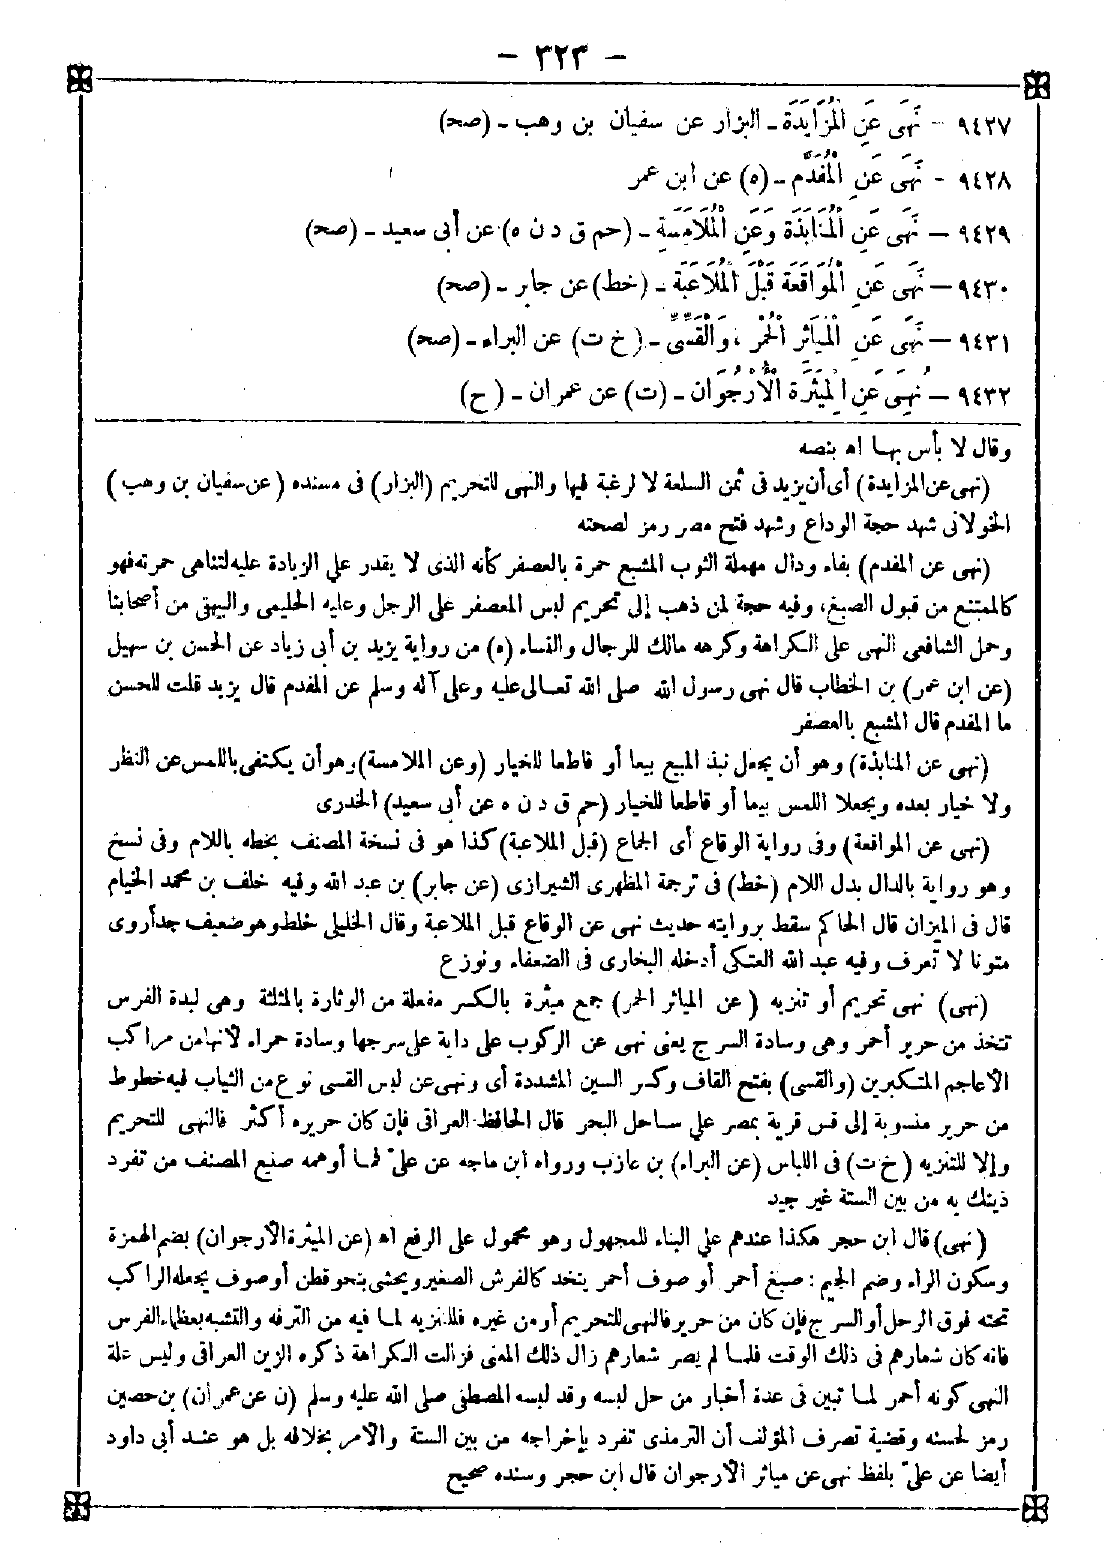 - ٣٢٣ -
٩٤٢٧ - نَهَى عَنِ الْمُزَايَدَةِ - البزار عن سفيان بن وهب - (صحـ)
٩٤٢٨ - نَهَى عَنِ الْمُفَدَّمِ - (ه) عن ابن عمر
٩٤٢٩ - نَهَى عَنِ الْمُنَابَذَةِ وَعَنِ الْمُلَامَسَةِ - (حم ق د ن ه) عن أبى سعيد - (صحـ)
٩٤٣٠ - نَهَى عَنِ الْمُوَاقَعَةِ قَبْلَ الْمُلَاعَبَةِ - (خط) عن جابر - (صحـ)
٩٤٣١ - نَهَى عَنِ الْمَيَاثِرِ الْحُمْرِ ، وَالْقَسِّىِّ - (خ ت) عن البراء - (صحـ)
٩٤٣٢ - نُهِىَ عَنِ الْمِيثَرَةِ الْأُرْجُوَانِ - (ت) عن عمران - (ح)
وقال لا بأس بها اه بنصه
(نهى عن المزايدة) أى أن يزيد فى ثمن السلعة لا لرغبة فيها والنهى للتحريم (البزار) فى مسنده (عن سفيان بن وهب)
الخولانى شهد حجة الوداع وشهد فتح مصر رمز لصحته
(نهى عن المفدم) بفاء ودال مهملة الثوب المشبع حمرة بالعصفر كأنه الذى لا يقدر على الزيادة عليه لتناهى حمرته فهو
كالممتنع من قبول الصبغ، وفيه حجة لمن ذهب إلى تحريم لبس المعصفر على الرجل وعليه الحليمى والبيهقى من أصحابنا
وحمل الشافعى النهى على الكراهة وكرهه مالك للرجال والنساء (ه) من رواية يزيد بن أبى زياد عن الحسن بن سهيل
(عن ابن عمر) بن الخطاب قال نهى رسول الله صلى الله تعالى عليه وعلى آله وسلم عن المفدم قال يزيد قلت للحسن
ما المفدم قال المشبع بالعصفر
(نهى عن المنابذة) وهو أن يجعل نبذ المبيع بيعا أو قاطعا للخيار (وعن الملامسة) وهو أن يكتفى باللمس عن النظر
ولا خيار بعده ويجعلا اللمس بيعا أو قاطعا للخيار (حم ق د ن ه عن أبى سعيد) الخدرى
(نهى عن المواقعة) وفى رواية الوقاع أى الجماع (قبل الملاعبة) كذا هو فى نسخة المصنف بخطه باللام وفى نسخ
وهو رواية بالدال بدل اللام (خط) فى ترجمة المظهرى الشيرازى (عن جابر) بن عبد الله وفيه خلف بن محمد الخيام
قال فى الميزان قال الحاكم سقط بروايته حديث نهى عن الوقاع قبل الملاعبة وقال الخليلى خلط وهو ضعيف جدا روى
متونا لا تعرف وفيه عبد الله العتكى أدخله البخارى فى الضعفاء ونوزع
(نهى) نهى تحريم أو تنزيه (عن المياثر الحمر) جمع ميثرة بالكسر مفعلة من الوثارة بالمثلثة وهى لبدة الفرس
تتخذ من حرير أحمر وهى وسادة السرج يعنى نهى عن الركوب على دابة على سرجها وسادة حمراء لأنها من مراكب
الأعاجم المتكبرين (والقسى) بفتح القاف وكسر السين المشددة أى ونهى عن لبس القسى نوع من الثياب فيه خطوط
من حرير منسوبة إلى قس قرية بمصر على ساحل البحر قال الحافظ العراقى فإن كان حريره أكثر فالنهى للتحريم
وإلا للتنزيه (خ ت) فى اللباس (عن البراء) بن عازب ورواه ابن ماجه عن علىّ فما أوهمه صنيع المصنف من تفرد
ذينك به من بين الستة غير جيد
(نهى) قال ابن حجر هكذا عندهم على البناء للمجهول وهو محمول على الرفع اه (عن الميثرة الأرجوان) بضم الهمزة
وسكون الراء وضم الجيم : صبغ أحمر أو صوف أحمر يتخذ كالفرش الصغير ويحشى بنحو قطن أو صوف يجعله الراكب
تحته فوق الرحل أو السرج فإن كان من حرير فالنهى للتحريم أو من غيره فللتنزيه لما فيه من الترفه والتشبه بعظماء الفرس
فانه كان شعارهم فى ذلك الوقت فلما لم يصر شعارهم زال ذلك المعنى فزالت الكراهة ذكره الزين العراقى وليس علة
النهى كونه أحمر لما تبين فى عدة أخبار من حل لبسه وقد لبسه المصطفى صلى الله عليه وسلم (ن عن عمران) بن حصين
رمز لحسنه وقضية تصرف المؤلف أن الترمذى تفرد بإخراجه من بين الستة والأمر بخلافه بل هو عند أبى داود
أيضا عن علىّ بلفظ نهى عن مياثر الأرجوان قال ابن حجر وسنده صحيح